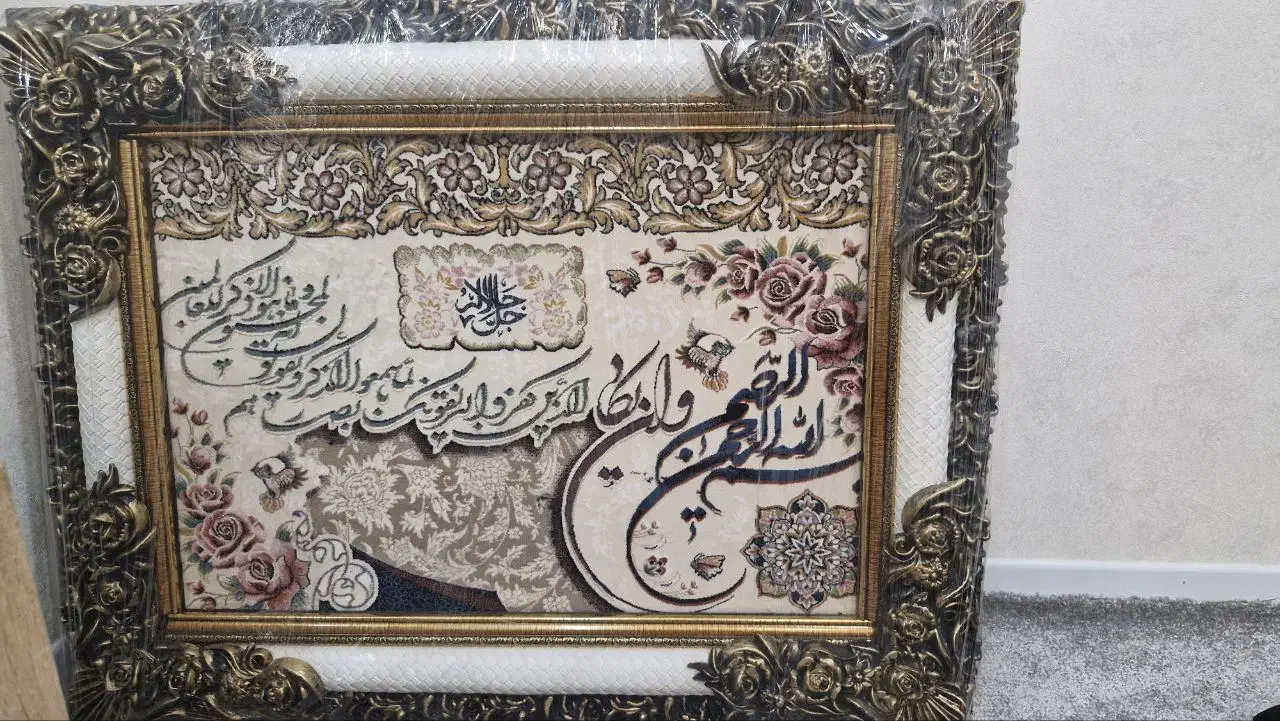 جل جلاله
بسم الله الرحمن الرحیم
وان یکاد
الذین کفروا لیزلقونک بابصارهم
لما سمعوا الذکر ویقولون انه
لمجنون وما هو الا ذکر للعالمین